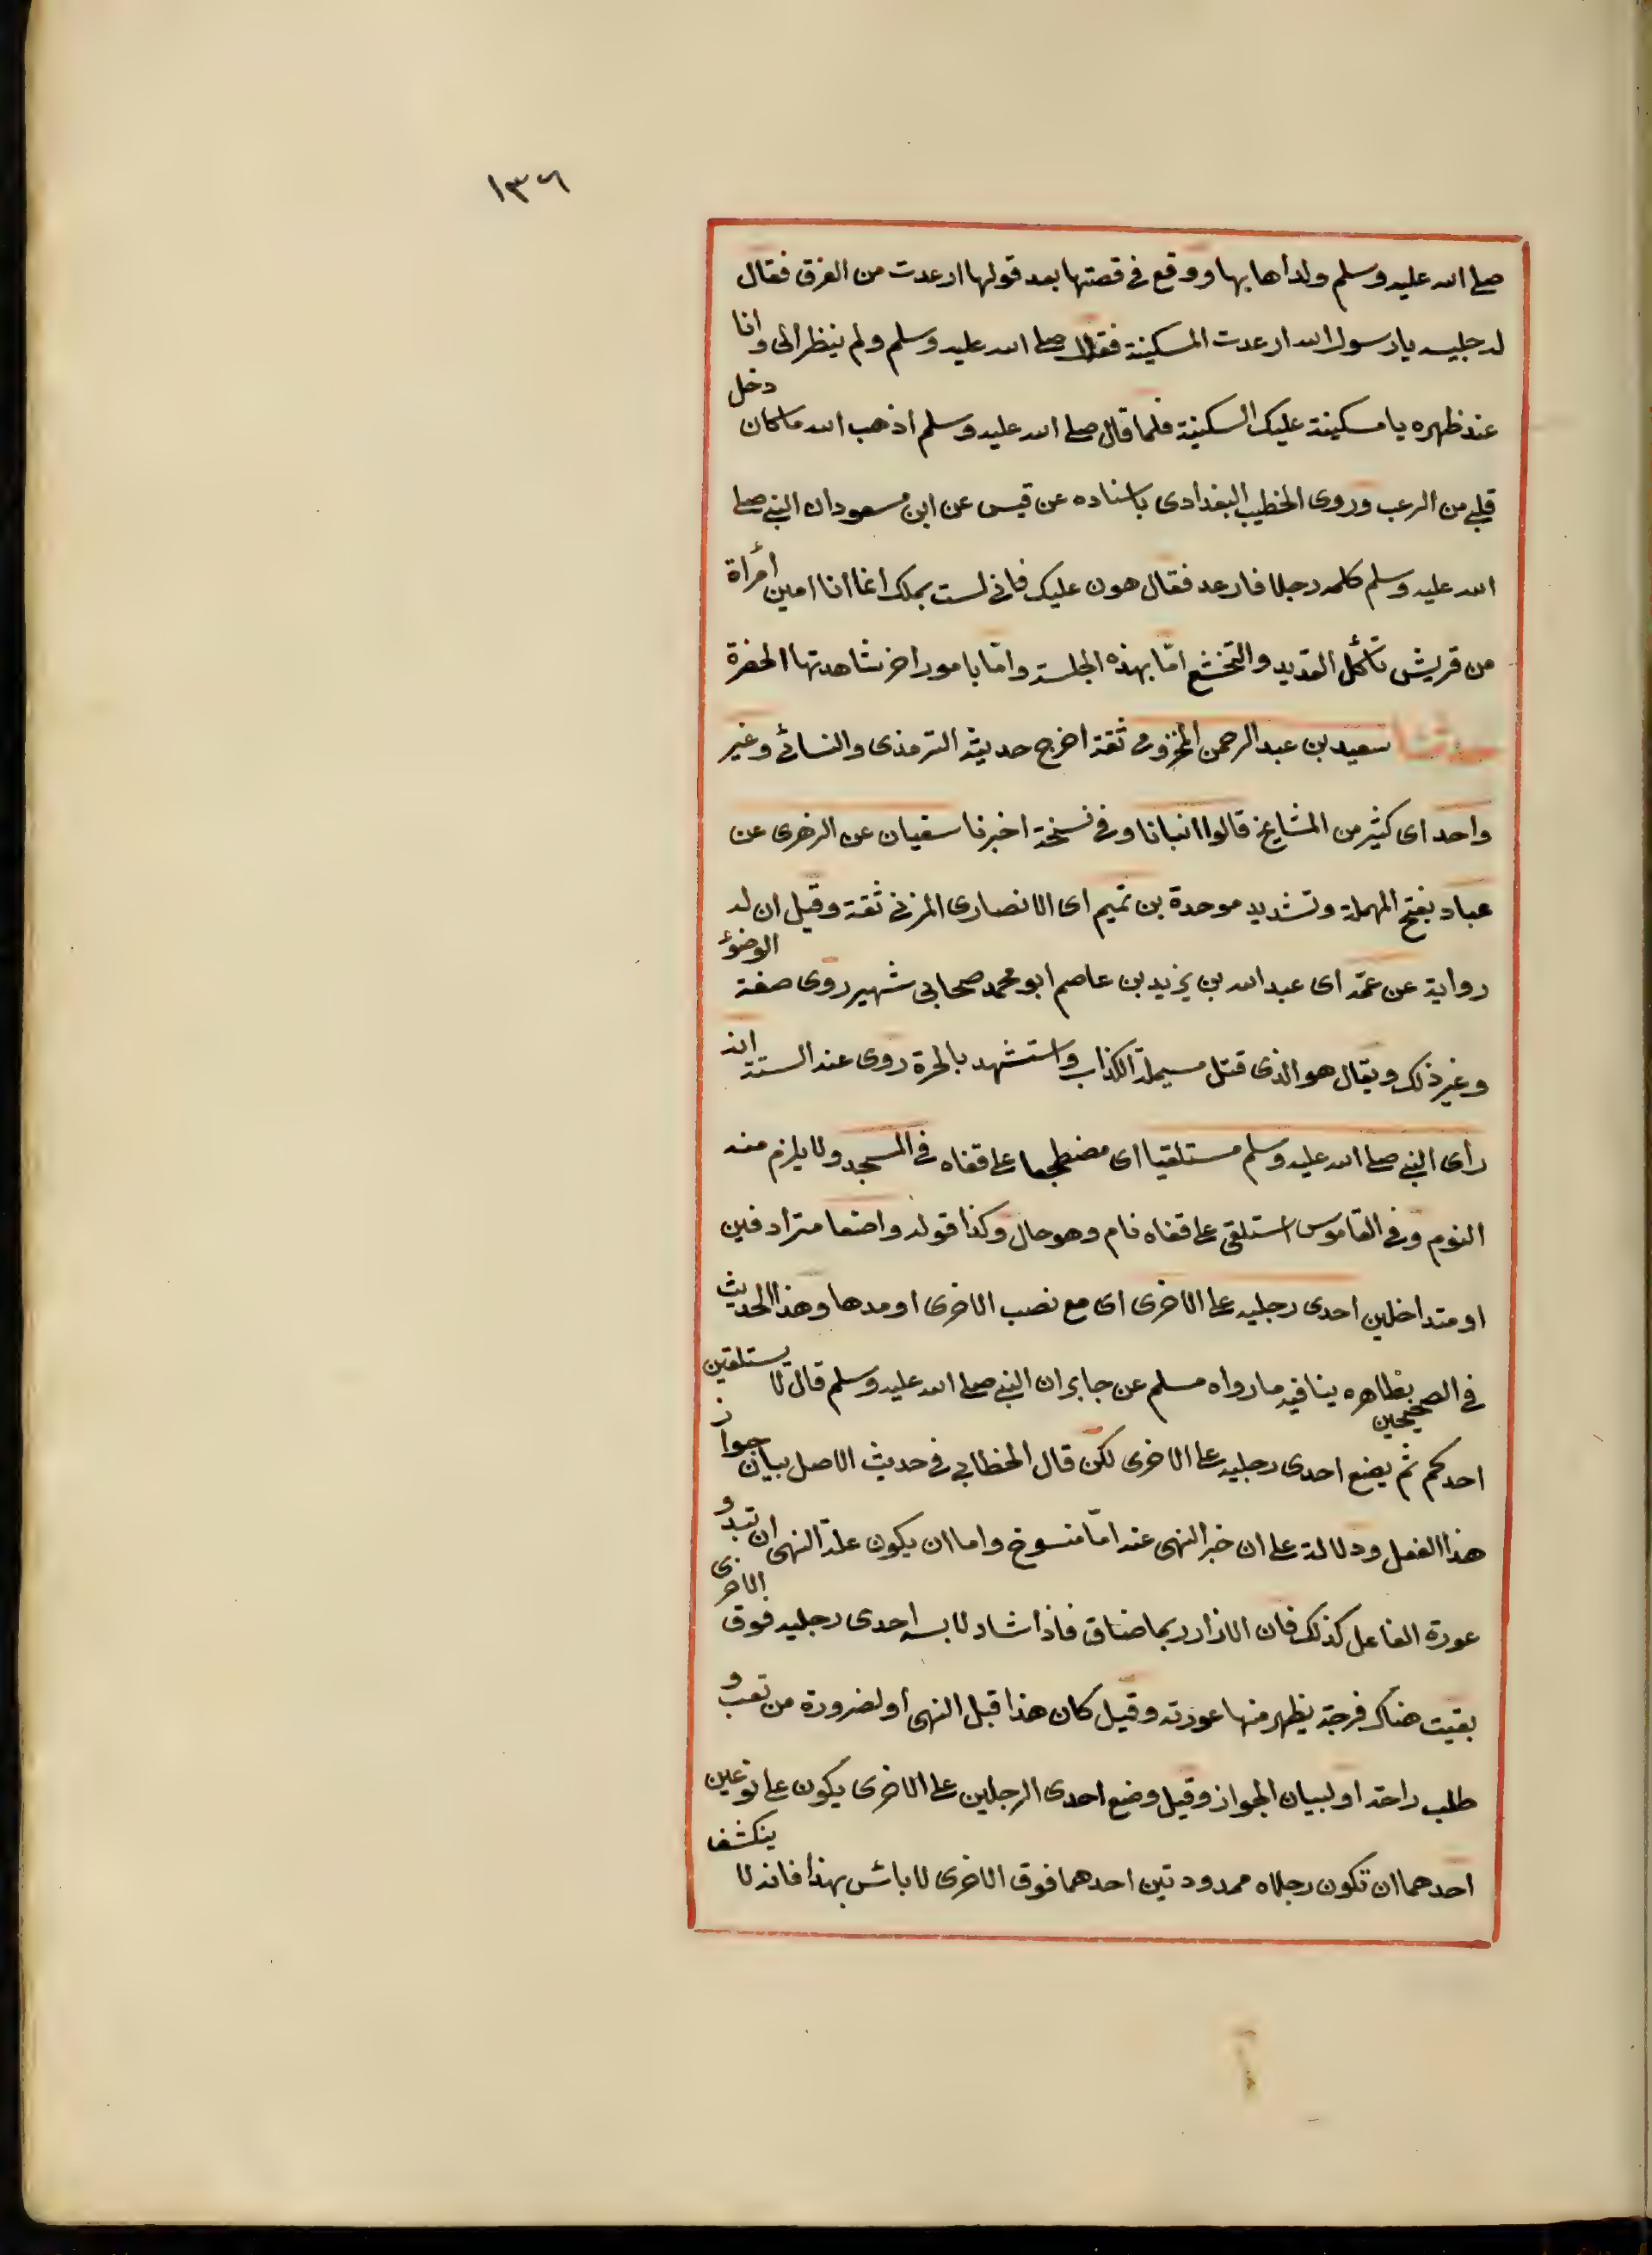 ١٣٦
صلى الله عليه وسلم ولدأها بها ووقع فى قصتها بعد قولها ارعدت من الفرق فقال
له جليسه يا رسول الله ارعدت المسكينة فقال صلى الله عليه وسلم ولم ينظر الى وانا
عند ظهره يا مسكينة عليك السكينة فلما قال صلى الله عليه وسلم اذهب الله ما كان دخل
قلبى من الرعب وروى الخطيب البغدادى باسناده عن قيس عن ابن مسعود ان النبى صلى
الله عليه وسلم كلمه رجلا فارعد فقال هون عليك فانى لست بملك انما انا امين أمرأة
من قريش تأكل القديد والتخشع امّا بهذه الجلسة وامّا بامور اخر شاهدتها الحضرة
حدثنا سعيد بن عبد الرحمن المخزومى ثقة اخرج حديثه الترمذى والنسائى وغير
واحد اى كثير من المشايخ قالوا انبانا وفى نسخة اخبرنا سفيان عن الزهرى عن
عباد بفتح المهملة وتشديد موحدة بن تميم اى الانصارى المزنى ثقة وقيل ان له
رواية عن عمّه اى عبد الله بن يزيد بن عاصم ابو محمد صحابى شهير روى صفة الوضوء
وغير ذلك ويقال هو الذى قتل مسيملة الكذاب واستشهد بالحرة روى عنه الستة انه
راى النبى صلى الله عليه وسلم مستلقيا اى مضطجعا على قفاه فى المسجد ولا يلزم منه
النوم وفى القاموس استلقى على قفاه نام وهو حال وكذا قوله واضعا مترادفين
او متداخلين احدى رجليه على الاخرى اى مع نصب الاخرى او مدها وهذا الحديث
فى الصحيحين بظاهره ينافيه ما رواه مسلم عن جابر ان النبى صلى الله عليه وسلم قال لا يستلقين
احدكم ثم يضع احدى رجليه على الاخرى لكن قال الخطابى فى حديث الاصل بيان جواز
هذا الفعل ودلالة على ان خبر النهى عنه امّا منسوخ واما ان يكون علة النهى ان تبدو
عورة الفاعل كذلك فان الازار ربما ضاق فاذا شاد لابسه احدى رجليه فوق الاخرى
بقيت هناك فرجة يظهر منها عورته وقيل كان هذا قبل النهى او لضرورة من تعب و
طلب راحة او لبيان الجواز وقيل وضع احدى الرجلين على الاخرى يكون على نوعين
احدهما ان تكون رجلاه ممدودتين احدهما فوق الاخرى لا بائس بهذا فانه لا ينكشف